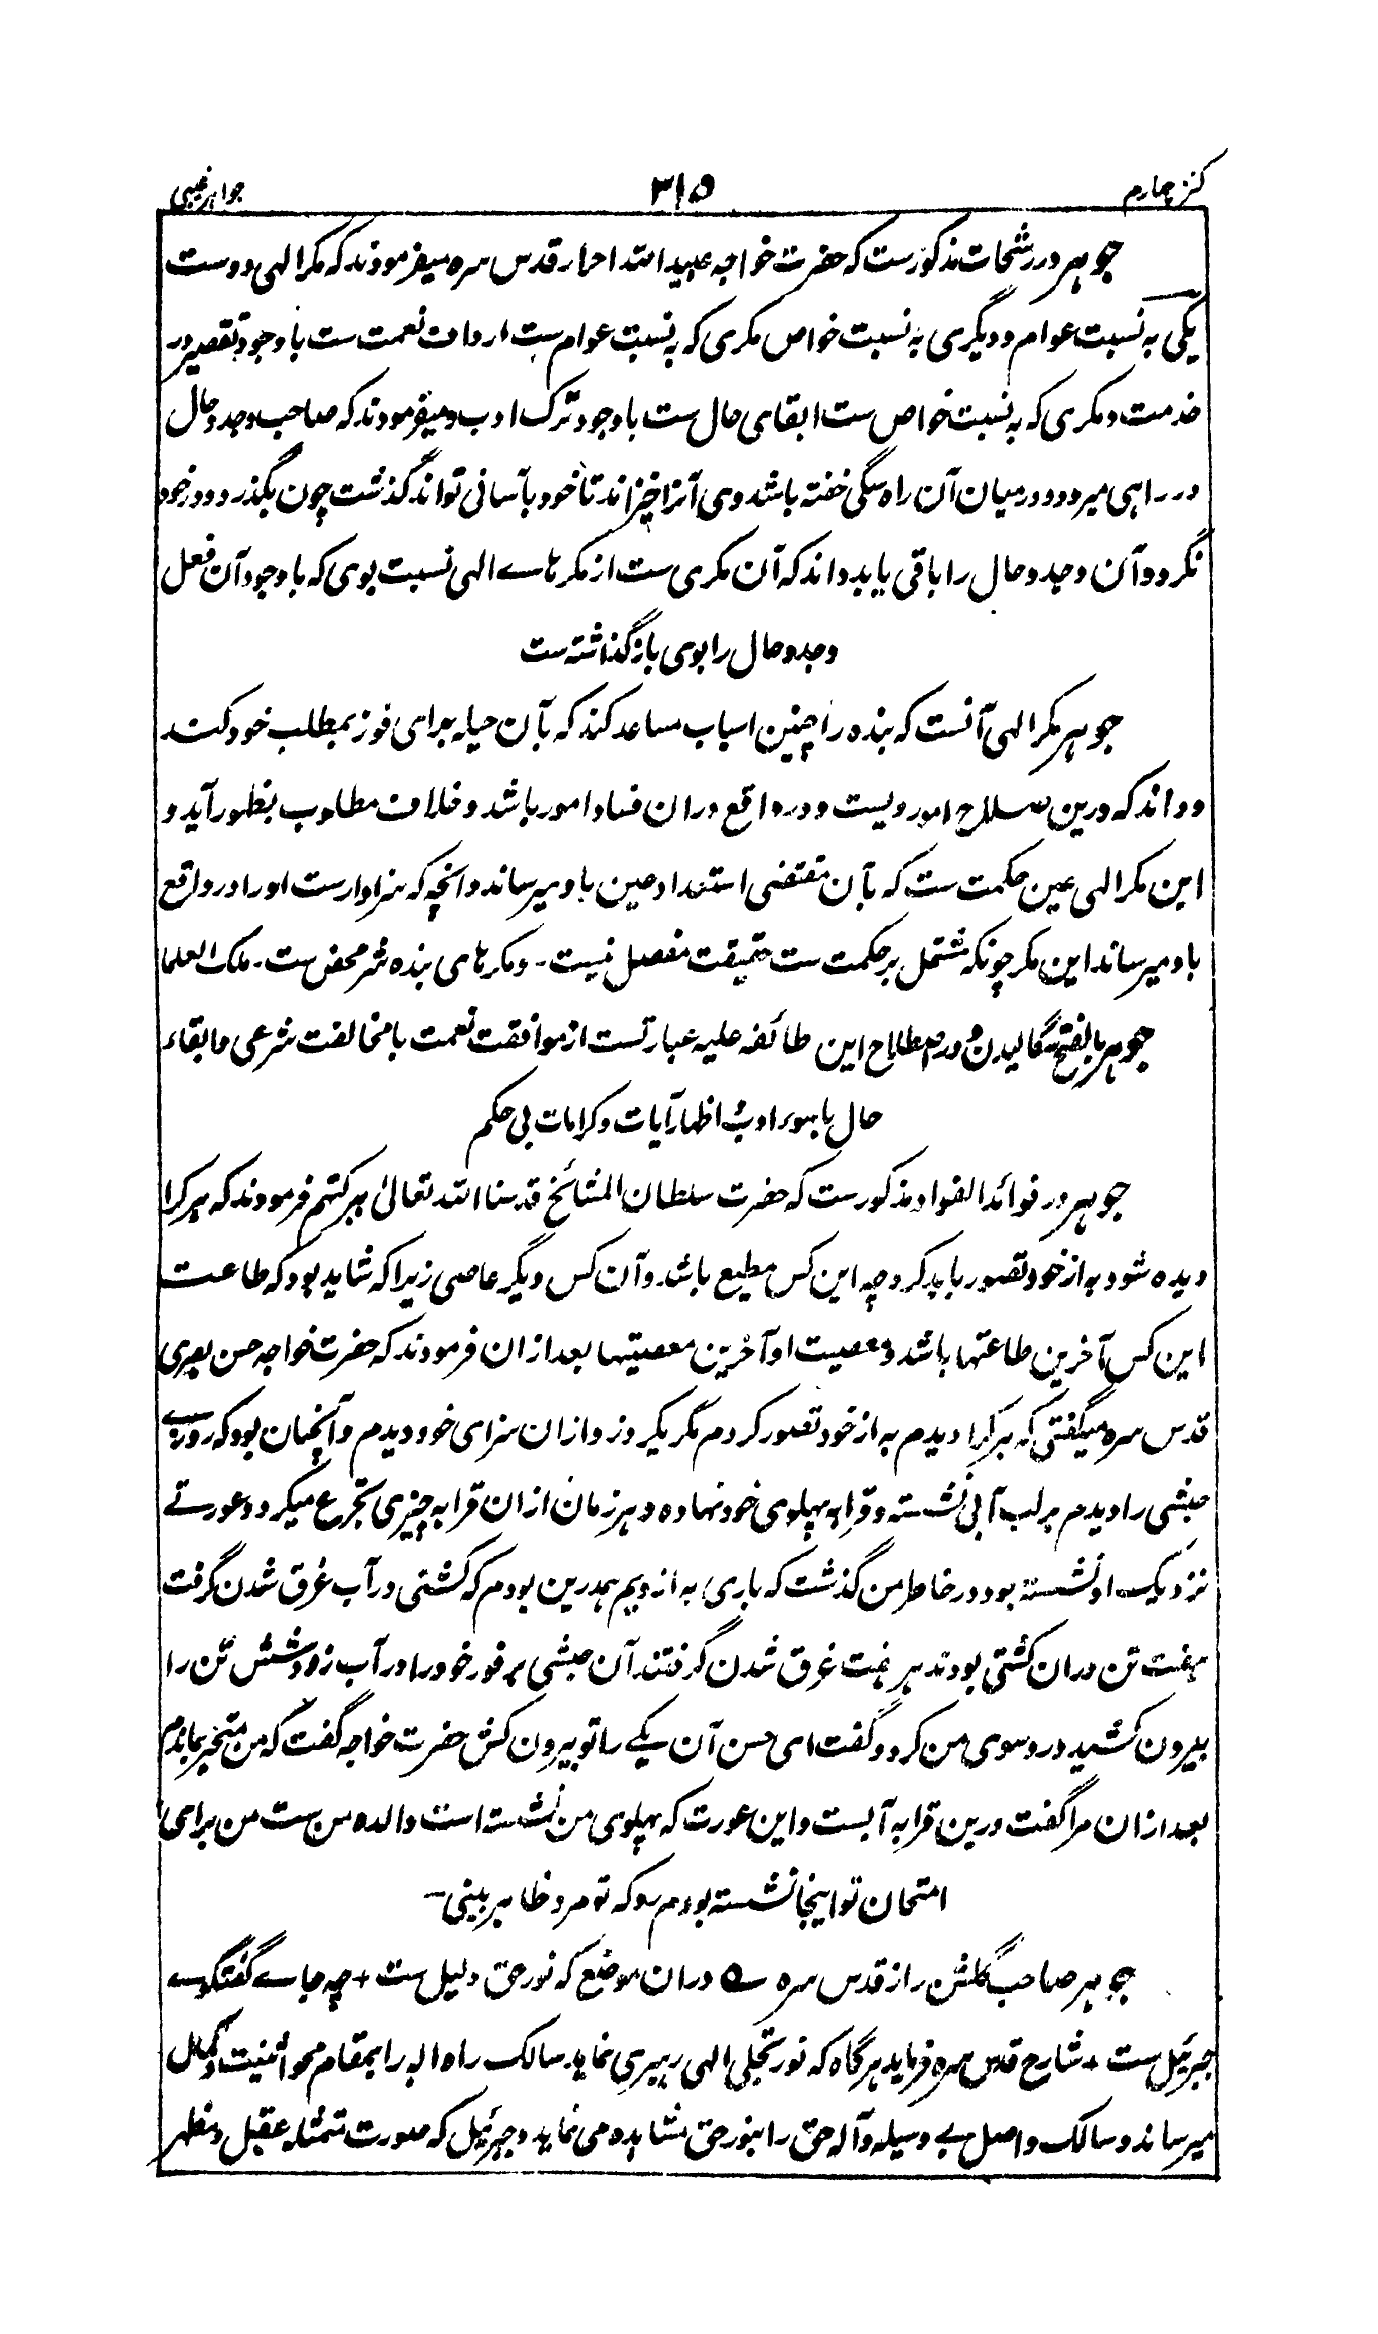 کنز چهارم ۳۱۵ جواهر غیبی
جوهر در رشحات مذکورست که حضرت خواجه عبید الله احرار قدس سره میفرمودند که مکر الهی دوست
یکی به نسبت عوام و دیگری به نسبت خواص مکری که به نسبت عوام ست ارداف نعمت ست با وجود تقصیر در
خدمت و مکری که به نسبت خواص ست ابقای حال ست با وجود ترک ادب و میفرمودند که صاحب وجد و حال
در راهی میرود و در میان آن راه سگی خفته باشد وی آنرا خیزاند تا خود بآسانی تواند گذشت چون بگذرد و در خود
نگرد و آن وجد و حال را باقی یابد داند که آن مکری ست از مکرهاے الهی نسبت بوی که با وجود آن فعل
وجد و حال را بوی باز گذاشته ست
جوهر مکر الهی آنست که بنده را چنین اسباب مساعد کند که بآن حیله برای فوز بمطلب خود کند
و داند که درین صلاح امور ویست و در واقع دران فساد امور باشد و خلاف مطلوب بظهور آید و
این مکر الهی عین حکمت ست که بآن مقتضی استعداد عین باو میرساند و آنچه که سزاوارست او را در واقع
باو میرساند این مکر چونکه مشتمل بر حکمت ست حقیقت مفصل نیست - و مکرهای بنده شر محض ست - ملک العلما
جوهر بالفتح سگالیدن و در اصطلاح این طائفه علیه عبارتست از موافقت نعمت با مخالفت شرعی و ابقاء
حال با سوء ادب و اظهار آیات و کرامات بی حکم
جوهر در فوائد الفواد مذکورست که حضرت سلطان المشائخ قدسنا الله تعالیٰ ببرکتهم فرمودند که هر کرا
دیده شود به از خود تصور باید کرد چه این کس مطیع باشد و آن کس دیگر عاصی زیرا که شاید بود که طاعت
این کس آخرین طاعتها باشد و معصیت او آخرین معصیتها بعد ازان فرمودند که حضرت خواجه حسن بصری
قدس سره میگفتی که هر کرا دیدم به از خود تصور کردم مگر یکروز و ازان سزای خود دیدم و آنچنان بود که روزے
حبشی را دیدم بر لب آبی نشسته و قرابه پهلوی خود نهاده و هر زمان ازان قرابه چیزی تجرع میکرد و عورتے
نزدیک او نشسته بود در خاطر من گذشت که باری به از ویم همدرین بودم که کشتی در آب غرق شدن گرفت
هفت تن دران کشتی بودند هر هفت غرق شدن گرفتند آن حبشی بر فور خود را در آب زد و شش تن را
بیرون کشید و رو سوی من کرد و گفت ای حسن آن یکے را تو بیرون کش حضرت خواجه گفت که من متحیر بماندم
بعد ازان مرا گفت درین قرابه آبست و این عورت که پهلوی من نشسته است والده من ست من برای
امتحان تو اینجا نشسته بودم رو که تو مرد ظاهر بینی -
جوهر صاحب گلشن راز قدس سره ے دران موضع که نور حق دلیل ست + چه جاے گفتگوے
جبرئیل ست + شارح قدس سره فرماید هرگاه که نور تجلی الهی رهبری نماید سالک راه اله را بمقام محو اثنینیت و کمال
میرساند و سالک واصل بے وسیله و آله حق را بنور حق مشاهده می نماید و جبرئیل که صورت تمثله عقل و مظهر